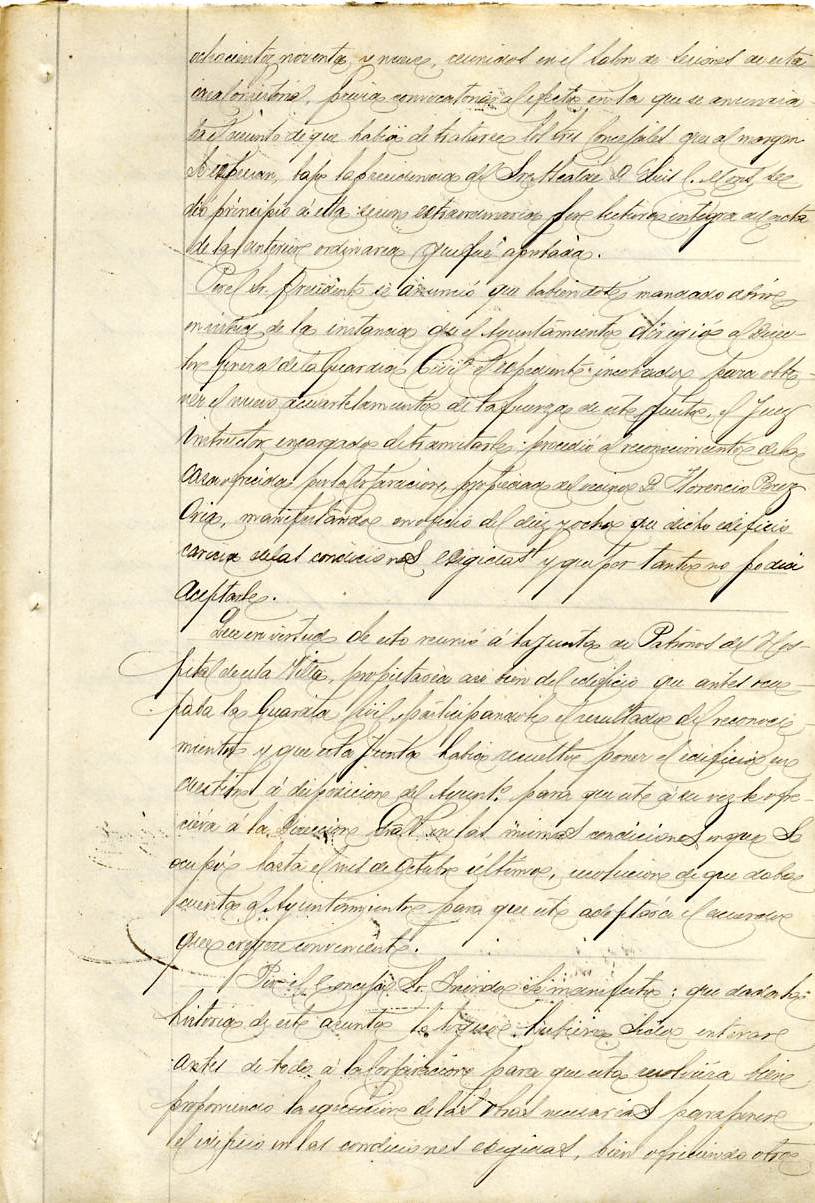 ochocientos noventa y nueve, reunidos en el Salon de Sesiones de esta
casa Consistorial, previa convocatoria al efecto en la que se anuncia-
ba el asunto de que habia de tratarse los Sres Concejales que al margen
se expresan, bajo la presidencia del Sr Alcalde D. Luis C. se
dió principio á esta sesion extraordinaria por lectura integra del acta
de la anterior ordinaria que fué aprobada.
Por el Sr. Presidente se anunció que habiendose mandado abrir
en virtud de la instancia que el Ayuntamiento dirigió al Direc-
tor General de la Guardia Civil el expediente incohado para obte-
ner el nuevo acuartelamiento de la fuerza de este puesto, el Juez
instructor encargado de tramitarle procedió al reconocimiento de la
casa ofrecida por la Corporacion, propiedad del vecino D. Florencio Perez
Oria, manifestando en oficio del diez y ocho que dicho edificio
carecia de las condiciones exigidas y que por tanto no podia
aceptarle.
Que en virtud de esto reunió á la Junta de Patronos del Hos-
pital de esta Villa, propietaria asi bien del edificio que antes ocu-
paba la Guardia Civil, participandole el resultado del reconoci-
miento y que esta Junta habia resuelto poner el edificio en
cuestion á disposicion del Ayunt.º para que este á su vez le ofre-
ciera á la Direccion Gral. en las mismas condiciones en que se
ocupó hasta el mes de Octubre último, resolucion de que daba
cuenta al Ayuntamiento para que este adoptara el acuerdo
que creyere conveniente.
Por el Concejal Sr. se manifestó: que dada la
historia de este asunto lo logico hubiera sido enterar
antes de todo á la Corporacion para que esta resolviera bien
proponiendo la ejecucion de las obras necesarias para poner
el edificio en las condiciones exigidas, bien ofreciendo otro